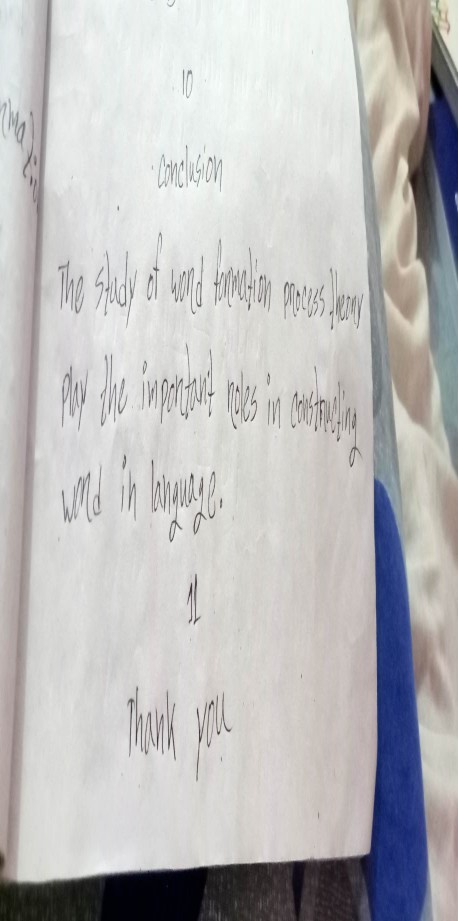 10
conclusion
The study of word formation process theory
play the important roles in constructing
word in language.
11
Thank you